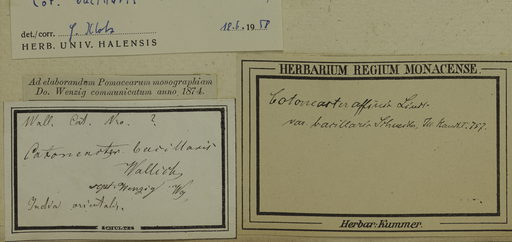 Cot. bacillaris
det./corr. G. Klotz 18.6. 1958
HERB. UNIV. HALENSIS
Ad elaborandam Pomacearum monographiam
Do. Wenzig communicatum anno 1874.
Wall. Cat. Nro. ?
Cotoneaster bacillaris
Wallich
Wenzig
India orientalis.
HERBARIUM REGIUM MONACENSE.
Cotoneaster affinis Lindl.
var. bacillaris Schneider, 757.
Herbar: Kummer.